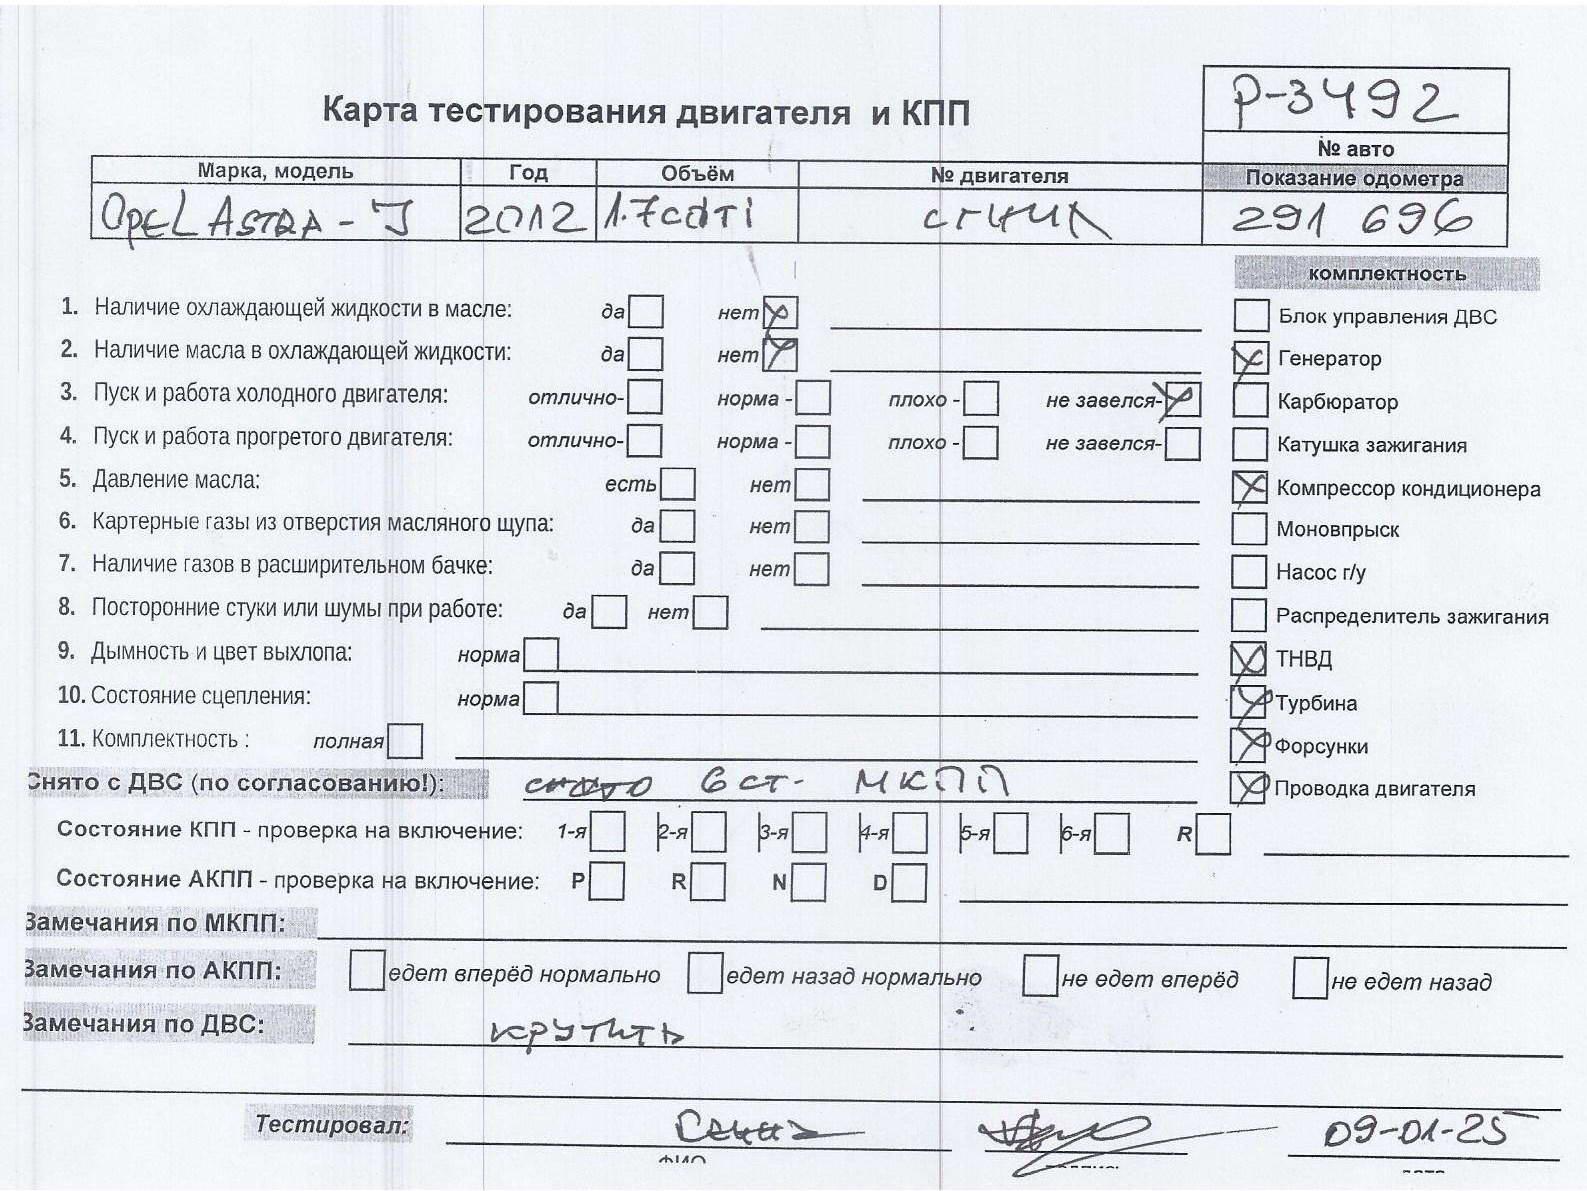 Р-3492
Карта тестирования двигателя и КПП
№ авто
Марка, модель Год Объём № двигателя Показание одометра
OPEL ASTRA-J 2012 1.7cdti 291 696
комплектность
1. Наличие охлаждающей жидкости в масле: да нет
Блок управления ДВС
2. Наличие масла в охлаждающей жидкости: да нет
Генератор
3. Пуск и работа холодного двигателя: отлично- норма - плохо - не завелся-
Карбюратор
4. Пуск и работа прогретого двигателя: отлично- норма - плохо - не завелся-
Катушка зажигания
5. Давление масла: есть нет
Компрессор кондиционера
6. Картерные газы из отверстия масляного щупа: да нет
Моновпрыск
7. Наличие газов в расширительном бачке: да нет
Насос г/у
8. Посторонние стуки или шумы при работе: да нет
Распределитель зажигания
9. Дымность и цвет выхлопа: норма
ТНВД
10. Состояние сцепления: норма
Турбина
11. Комплектность : полная
Форсунки
Снято с ДВС (по согласованию!): снято 6 ст- МКПП
Проводка двигателя
Состояние КПП - проверка на включение: 1-я 2-я 3-я 4-я 5-я 6-я R
Состояние АКПП - проверка на включение: P R N D
Замечания по МКПП:
Замечания по АКПП: едет вперёд нормально едет назад нормально не едет вперёд не едет назад
Замечания по ДВС: крутить
Тестировал: 09-01-25
ФИО